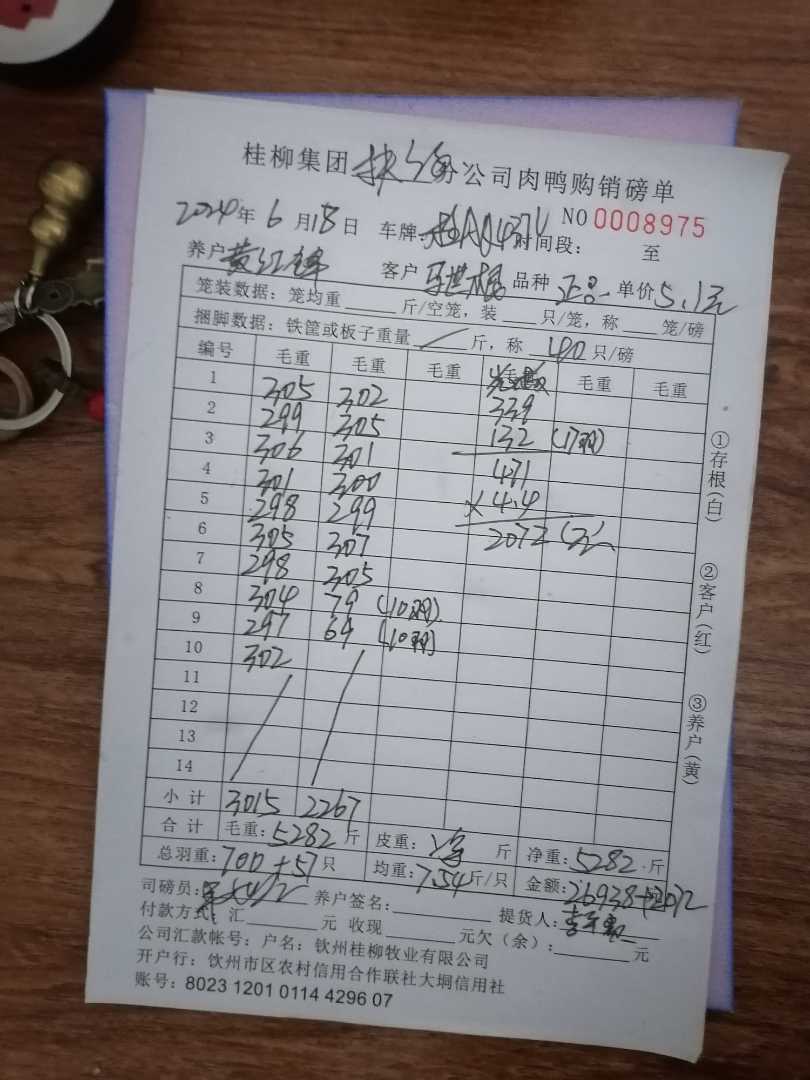 桂柳集团 分公司肉鸭购销磅单
2024年6月18日 车牌 时间段: 至 NO 0008975
养户 黄红锋 客户 马世 品种 正品 单价5.1元
笼装数据:笼均重 斤/空笼,装 只/笼,称 笼/磅
捆脚数据:铁筐或板子重量 / 斤,称 40 只/磅
编号 毛重 毛重 毛重 毛重 毛重 毛重
1 305 302 339
2 299 305 132 (17羽)
3 306 301 471
4 301 300 ×4.4
5 298 299 2072元
6 305 307
7 298 305
8 304 79 (10羽)
9 297 64 (10羽)
10 302
11
12
13
14
小计 3015 2267
合计 毛重:5282斤 皮重: 斤 净重:5282斤
总羽重:700+57只 均重:7.54斤/只 金额:26938+2072
司磅员: 养户签名: 提货人:
付款方式:汇 元 收现 元欠(余): 元
公司汇款帐号:户名:钦州桂柳牧业有限公司
开户行:钦州市区农村信用合作联社大垌信用社
账号:8023 1201 0114 4296 07
①存根(白)
②客户(红)
③养户(黄)